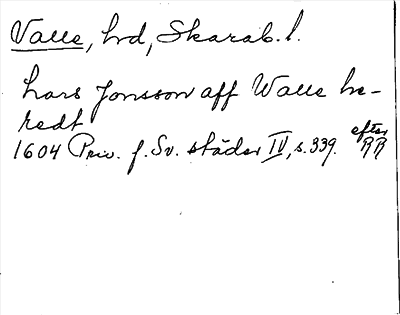 Valle, hd, Skarab. l.
Lars Jonsson aff Walle he-
redt
1604 Priv. f. Sv. städer IV, s. 339. efter RR